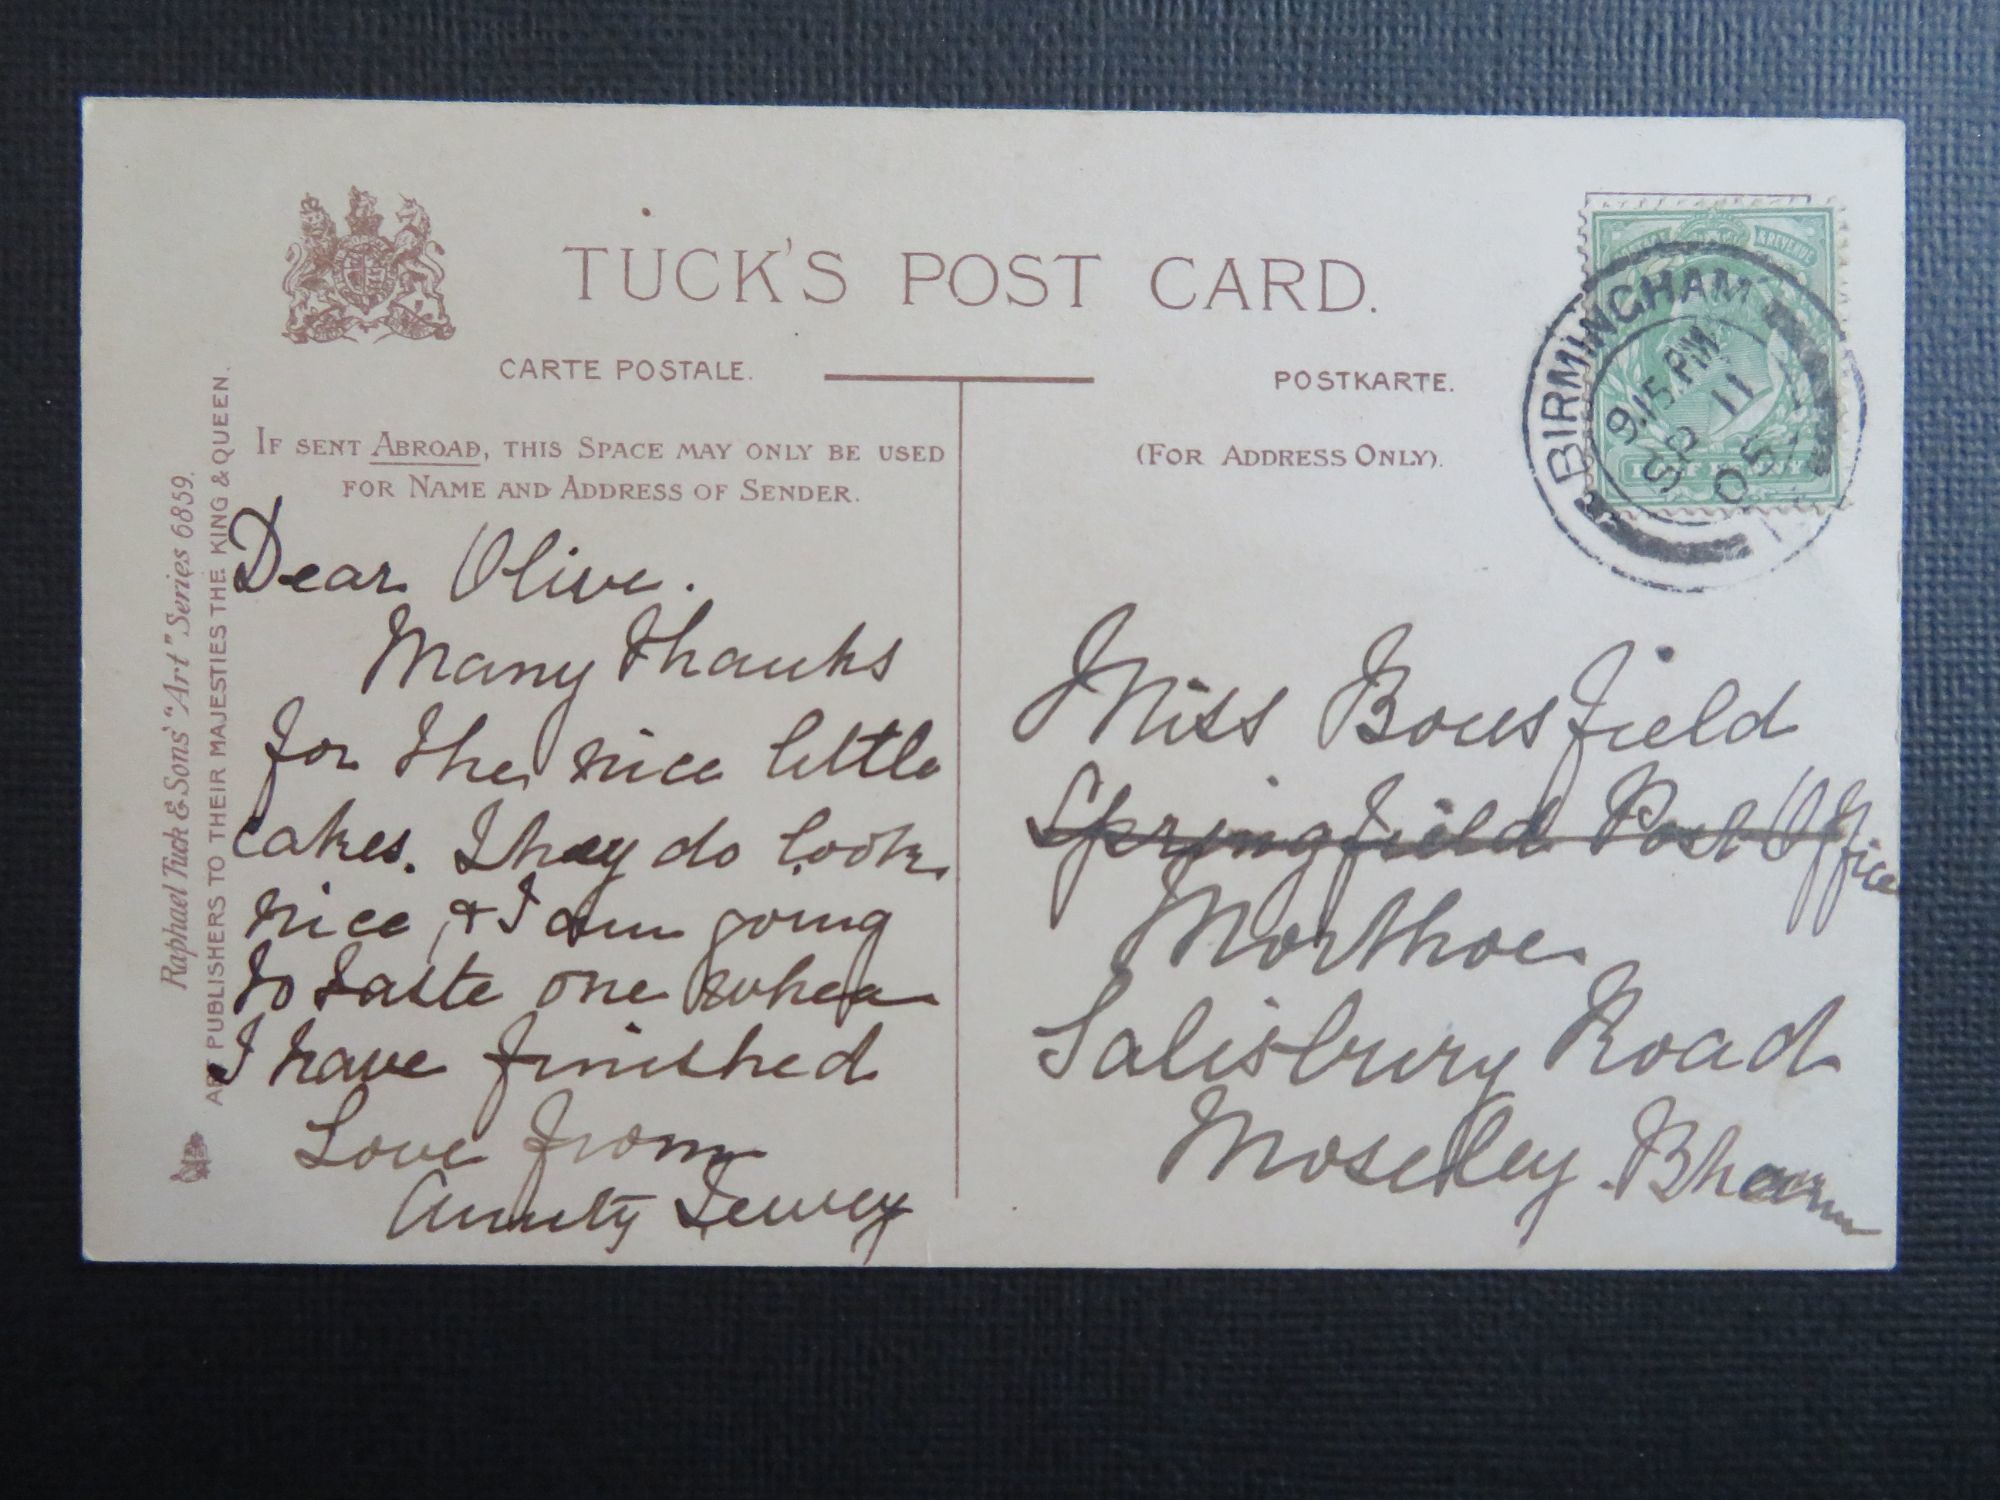 TUCK'S POST CARD.
CARTE POSTALE.
POSTKARTE.
IF SENT ABROAD, THIS SPACE MAY ONLY BE USED
FOR NAME AND ADDRESS OF SENDER.
(FOR ADDRESS ONLY).
Raphael Tuck & Sons' "Art" Series 6859.
ART PUBLISHERS TO THEIR MAJESTIES THE KING & QUEEN.
Dear Olive.
Many thanks
for the nice little
cakes. They do look
nice, & I am going
to taste one when
I have finished
Love from
Aunty
Miss Bousfield
Springfield Post Office
Morthoe
Salisbury Road
Moseley. Bham
BIRMINGHAM
9.15 PM
SP 11
05